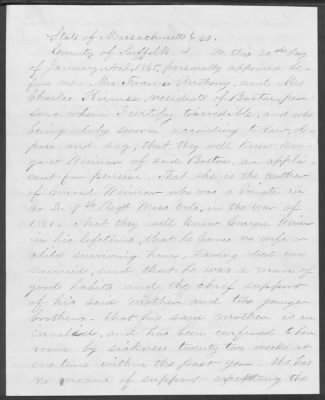 State of Massachusetts ss.
County of Suffolk On this 20th day
of January A.D. 1865, personally appeared be-
fore me Mrs Francis Anthony, and Mrs
Charles residents of Boston, per-
sons whom I certify to credible, and who
being duly sworn according to law, de-
pose and say, that they well knew Mar-
garet of said Boston, an appli-
cant for pension. That she is the mother
of Conrad who was a Private in
Co 9th Regt Mass Vols, in the war of
1861. That they well knew Conrad
in his lifetime, that he leaves no wife or
child surviving him, having died un-
married, and that he was a man of
good habits and the chief support
of his said mother and two younger
brothers. that his said mother is an
invalid, and has been confined to her
room by sickness twenty two weeks at
one time within the past year She has
no means of support excepting the